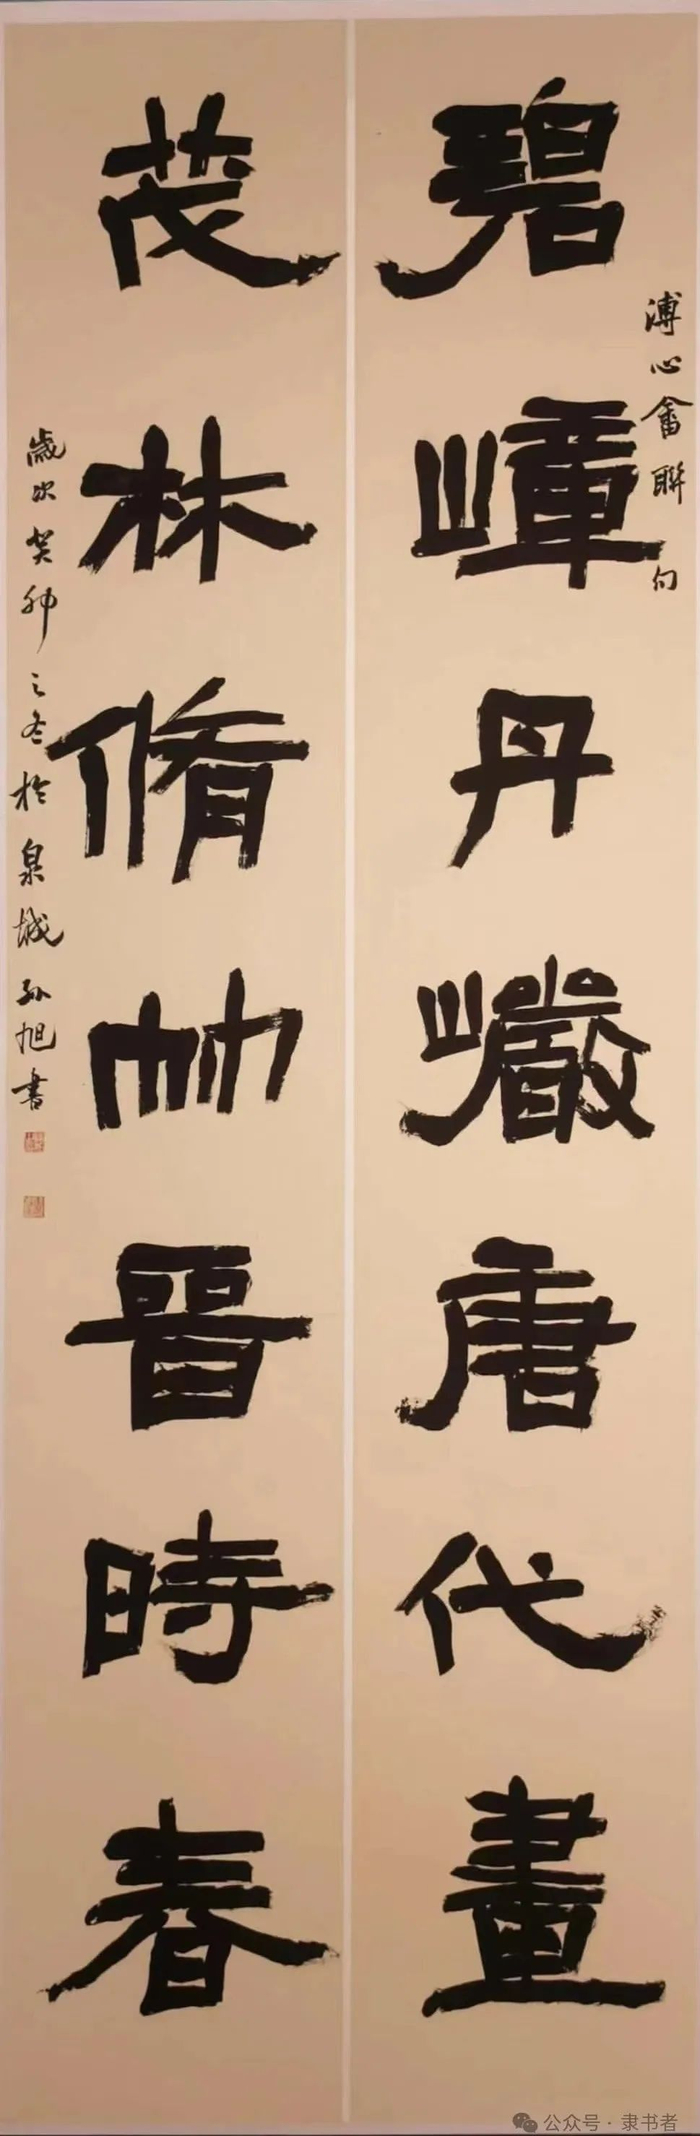 碧嶂丹巖唐代畫
溥心畬聯句
茂林脩竹晉時春
歲次癸卯之冬於泉城孫旭書
公众号·隶书者